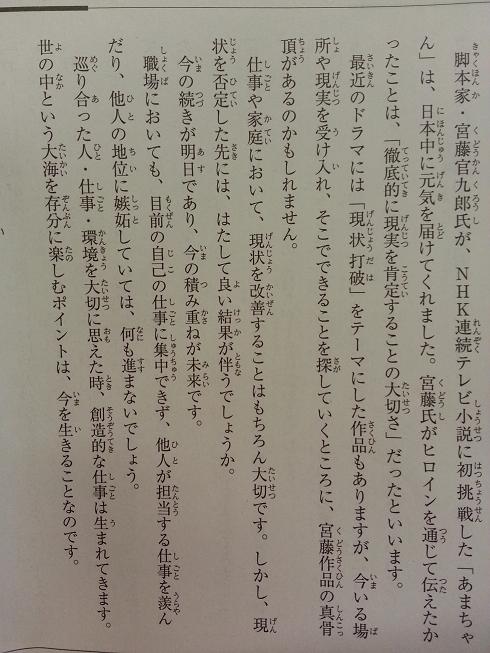 脚本家・宮藤官九郎氏が、NHK連続テレビ小説に初挑戦した「あまちゃ
ん」は、日本中に元気を届けてくれました。宮藤氏がヒロインを通じて伝えたか
ったことは、「徹底的に現実を肯定することの大切さ」だったといいます。
最近のドラマには「現状打破」をテーマにした作品もありますが、今いる場
所や現実を受け入れ、そこでできることを探していくところに、宮藤作品の真骨
頂があるのかもしれません。
仕事や家庭において、現状を改善することはもちろん大切です。しかし、現
状を否定した先には、はたして良い結果が伴うでしょうか。
今の続きが明日であり、今の積み重ねが未来です。
職場においても、目前の自己の仕事に集中できず、他人が担当する仕事を羨ん
だり、他人の地位に嫉妬していては、何も進まないでしょう。
巡り合った人・仕事・環境を大切に思えた時、創造的な仕事は生まれてきます。
世の中という大海を存分に楽しむポイントは、今を生きることなのです。